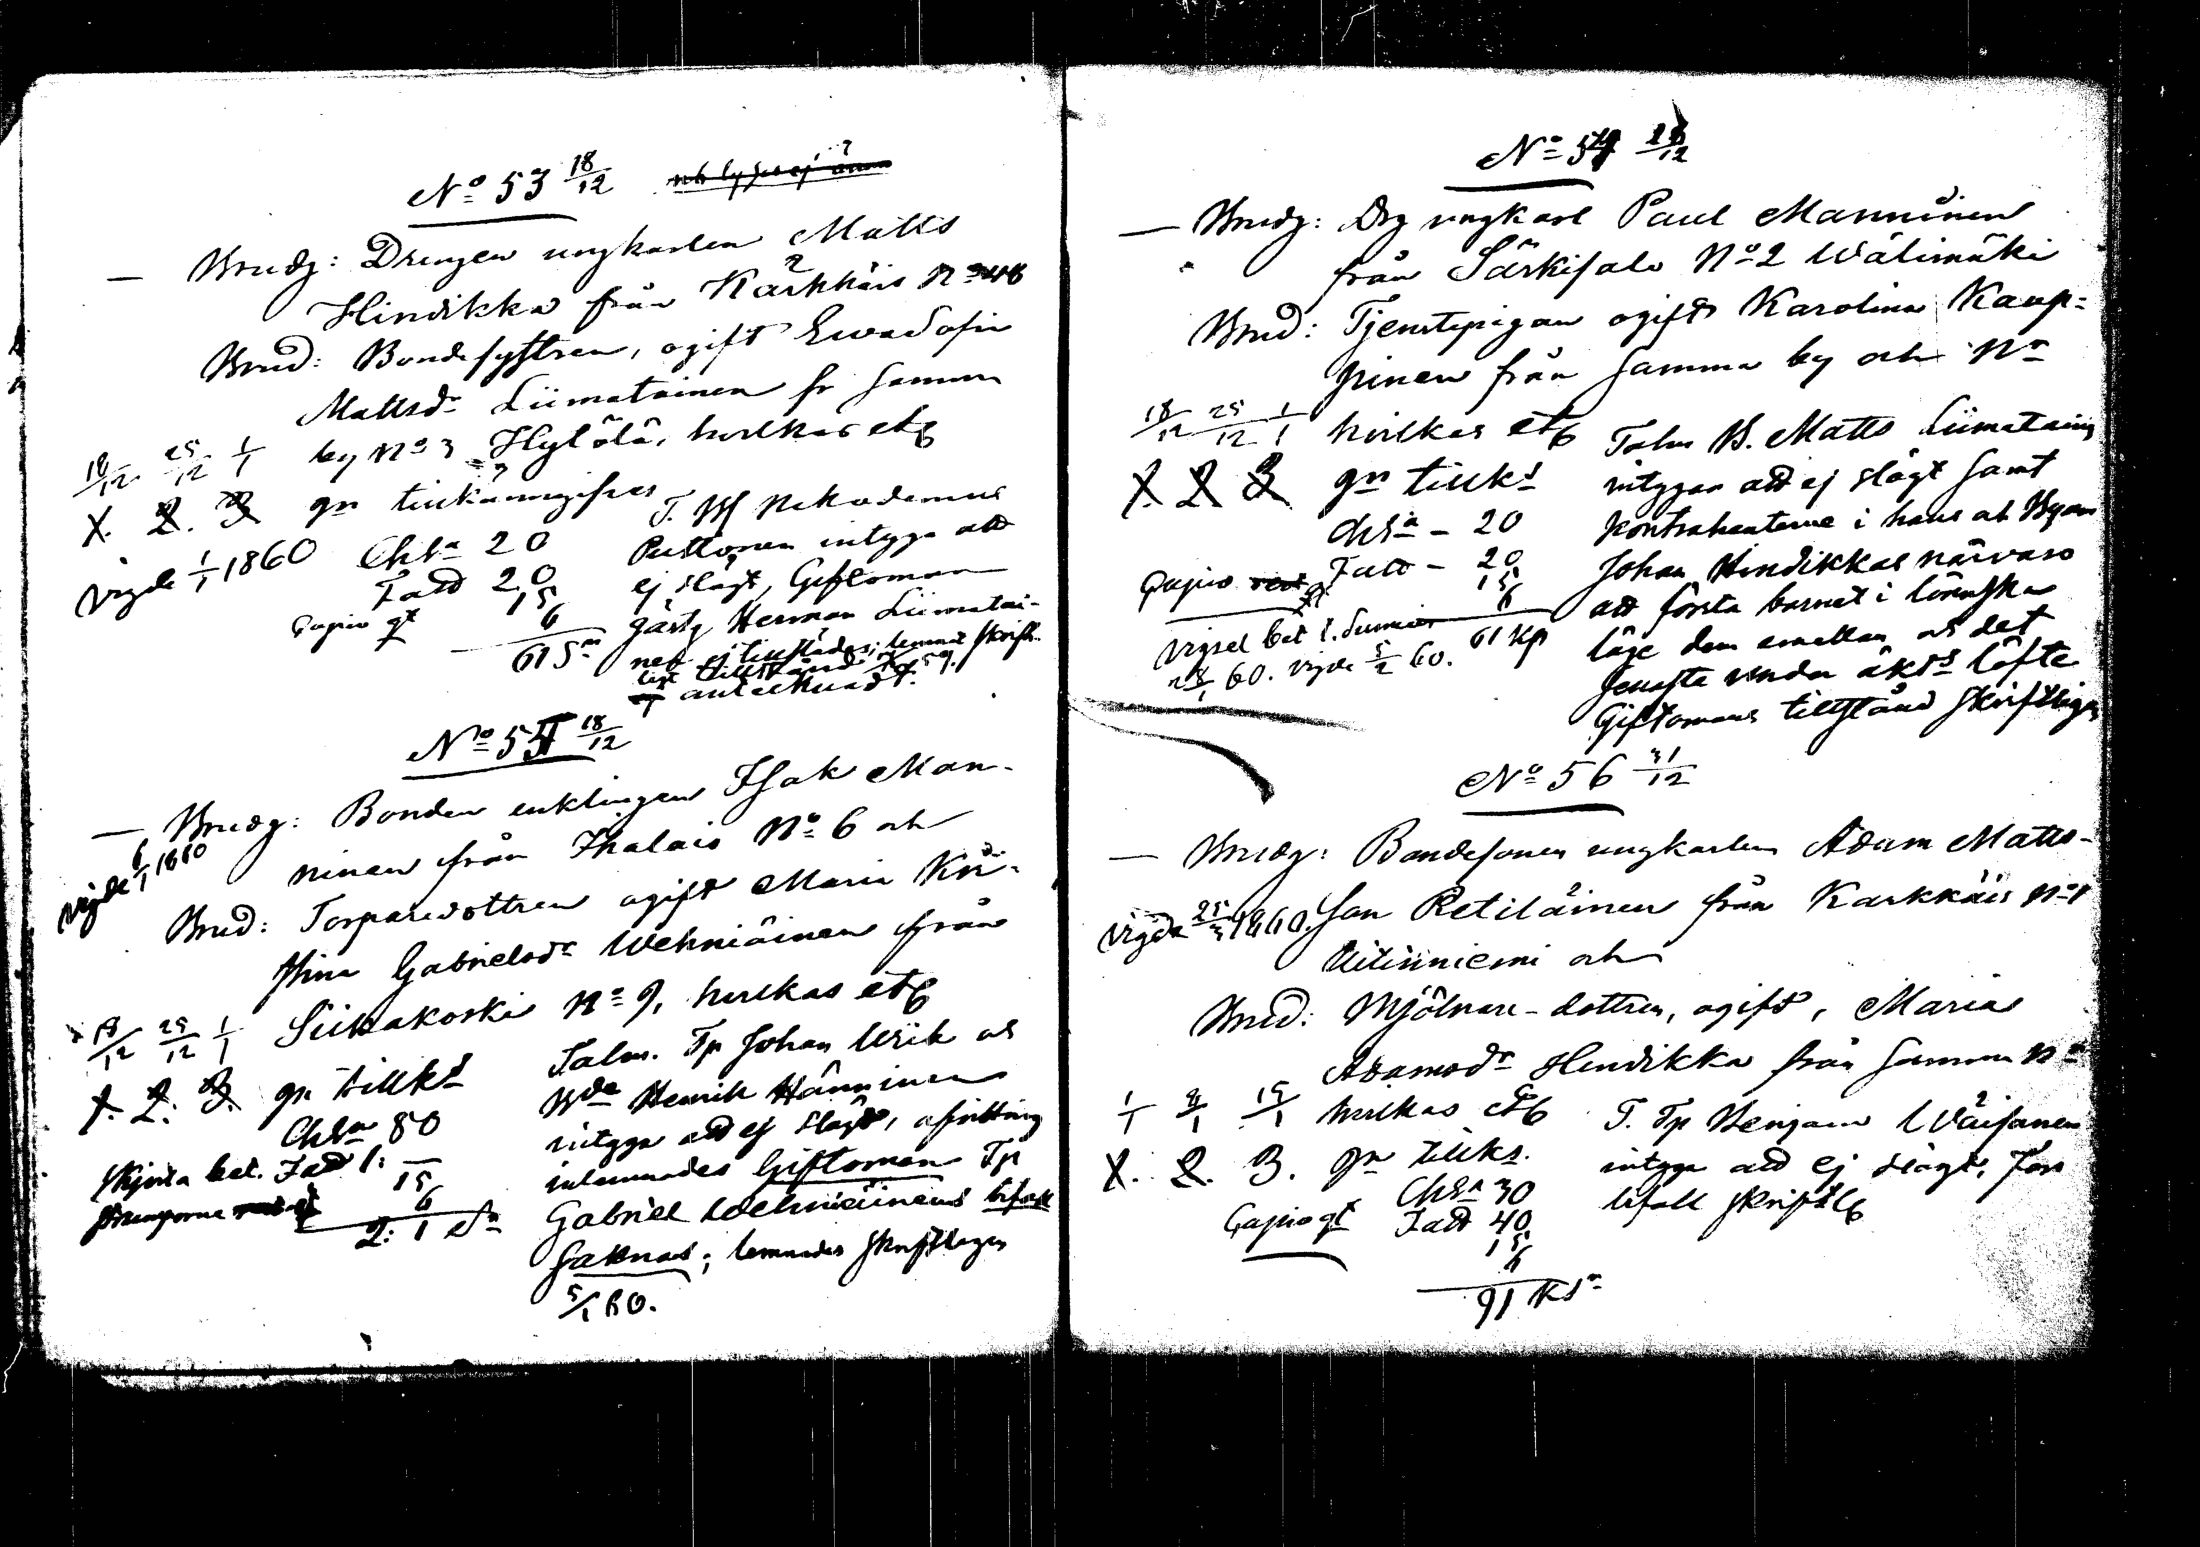 No 53 18/12
Brudg: Drengen ungkarlen Matts
Hindikka från Kärkkäis No 48
Brud: Bondesystren, ogift Eva Sofia
Mattsdr Liimatainen fr samma
by No 3 Hytölä, hvilkas etc
18/12 25/12 1/1
1. 2. 3 gn tillkännagifves
vigde 1/1 1860
Chsa 20
Fattd 20
15
6
61 Sr
Gapio qt
T. Bd Nikodemus
Puttonen intyga att
ej slägt, Giftoman
gästg Herman Liimatai-
nen ej tillstädes; lemnat skrift-
ligt tillstånd
antecknadt.
No 54 18/12
Brudg: Bonden enklingen Isak Man-
ninen från Ihalais No 6 och
vigde 6/1 1860
Brud: Torparedottren ogift Maria Kri-
stina Gabrielsdr Wehniäinen från
Siikakoski No 9, hvilkas etc
18/12 25/12 1/1
1. 2. 3. gn tillks
Chsa 80
Fattd 1: —
15
6
2: 1 Sr
Skjorta bet.
Strumporne
Talm. Tp Johan Wiik och
Bde Henrik Hänninen
intyga att ej slägt, afvittring
inlemnades Giftoman Tp
Gabriel Wehniäinens bifall
saknas; lemnades skriftligen
5/1 60.
No 55 18/12
Brudg: Drg ungkarl Paul Manninen
från Särkisalo No 2 Wälimäki
Brud: Tjenstepigan ogift Karolina Kaup-
pinen från samma by och No
18/12 25/12 1/1 hvilkas etc
1. 2. 3 gn tillks
Chsa - 20
Fattd - 20
15
6
61 Kp
Gapio
Vigsel bet i Sumiais
60. vigde 5/2 60.
Talm B. Matts Liimatainen
intygar att ej slägt samt
kontrahenterne i hans och Byam
Johan Hindikkas närvaro
att första barnet i lönska
läge dem emellan och det
senaste under äkts löfte
Giftomans tillstånd skriftligen
No 56 31/12
Brudg: Bondesonen ungkarlen Adam Matts-
son Retiläinen från Karkkäis No 1
vigde 25/3 1860.
Uitinniemi och
Brud: Mjölnare-dottren, ogift, Maria
Adamsdr Hindikka från samma No
1/1 8/1 15/1 hvilkas etc
1. 2. 3. gn tillks.
Chsa 30
Fattd 40
15
6
91 Ksr
Gapio qt
T. Tp Benjam Wäisänen
intyga att ej slägt, Fars
bifall skriftl